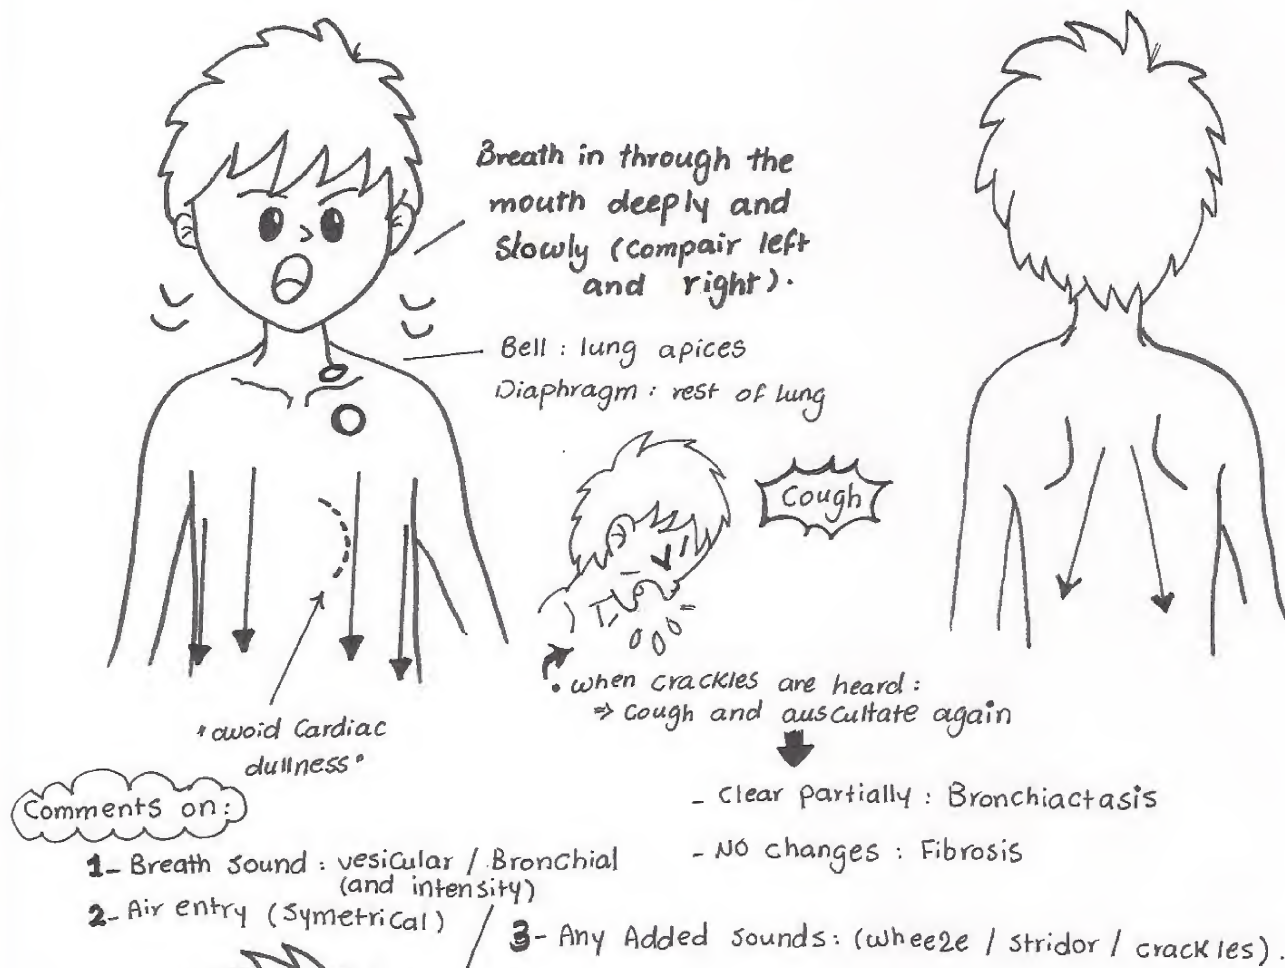 Breath in through the
mouth deeply and
Slowly (compair left
and right).
Bell : lung apices
Diaphragm : rest of lung
Cough
• when crackles are heard :
⇒ Cough and auscultate again
"avoid Cardiac
dullness"
Comments on:
- Clear partially : Bronchiactasis
- No changes : Fibrosis
1- Breath Sound : vesicular / Bronchial
(and intensity)
2- Air entry (Symetrical)
3- Any Added Sounds: (wheeze / stridor / crackles).